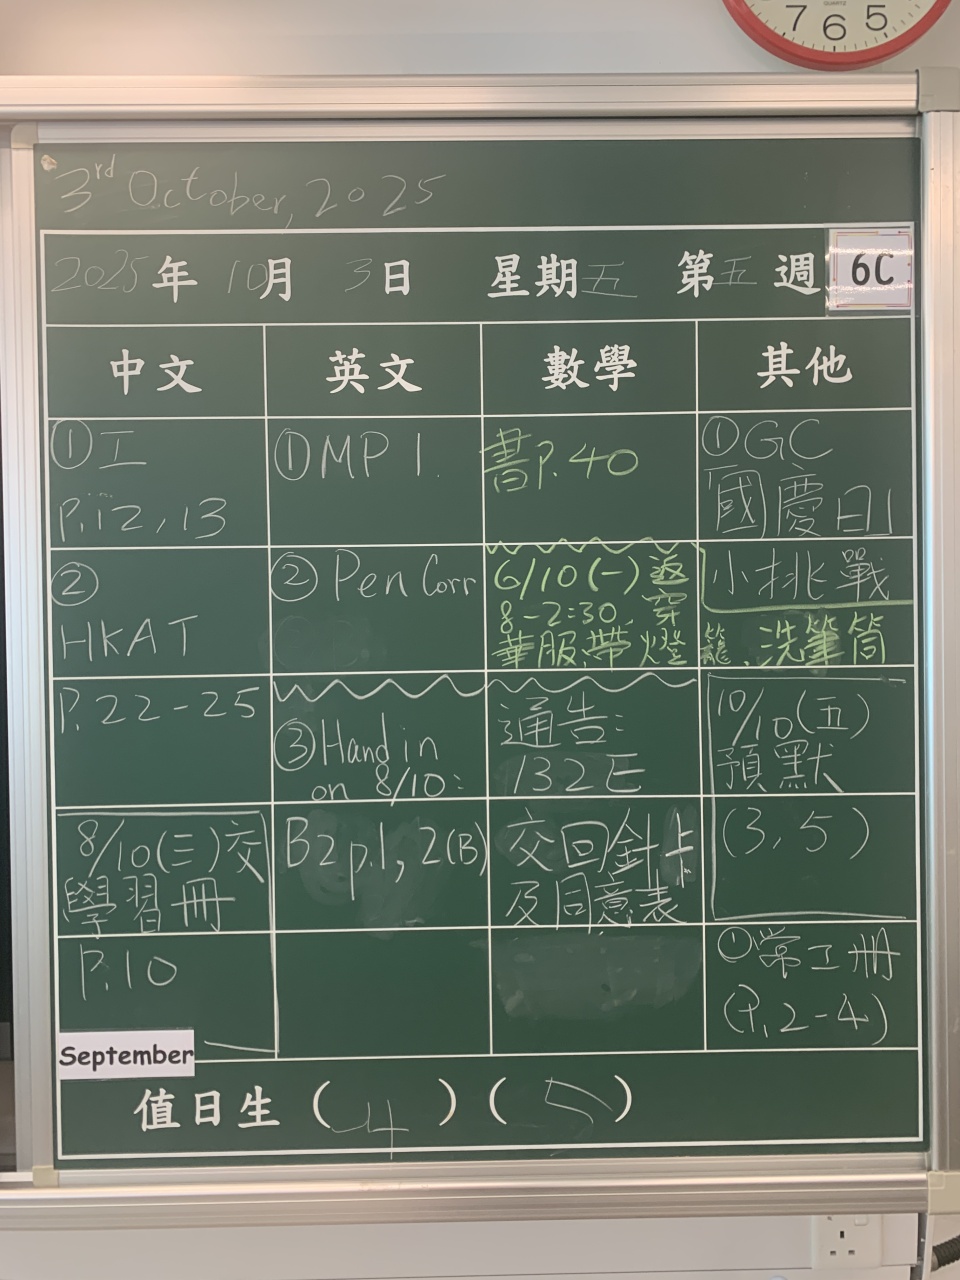 7 6 5
QUARTZ
3rd October, 2025
2025年 10月 3日 星期五 第五週 6C
中文 英文 數學 其他
①工
P.12, 13
①MP 1.
書P.40
①GC
國慶日
小挑戰
②
HKAT
P.22-25
②Pen Corr
6/10(一)返
8-2:30, 穿
華服,帶燈
籠、洗筆筒
③Hand in
on 8/10:
B2 p.1, 2(B)
通告:
132E
交回針卡
及同意表
10/10(五)
預默
(3, 5)
8/10(三)交
學習冊
P.10
①常工冊
(P.2-4)
September
值日生 (4) (5)